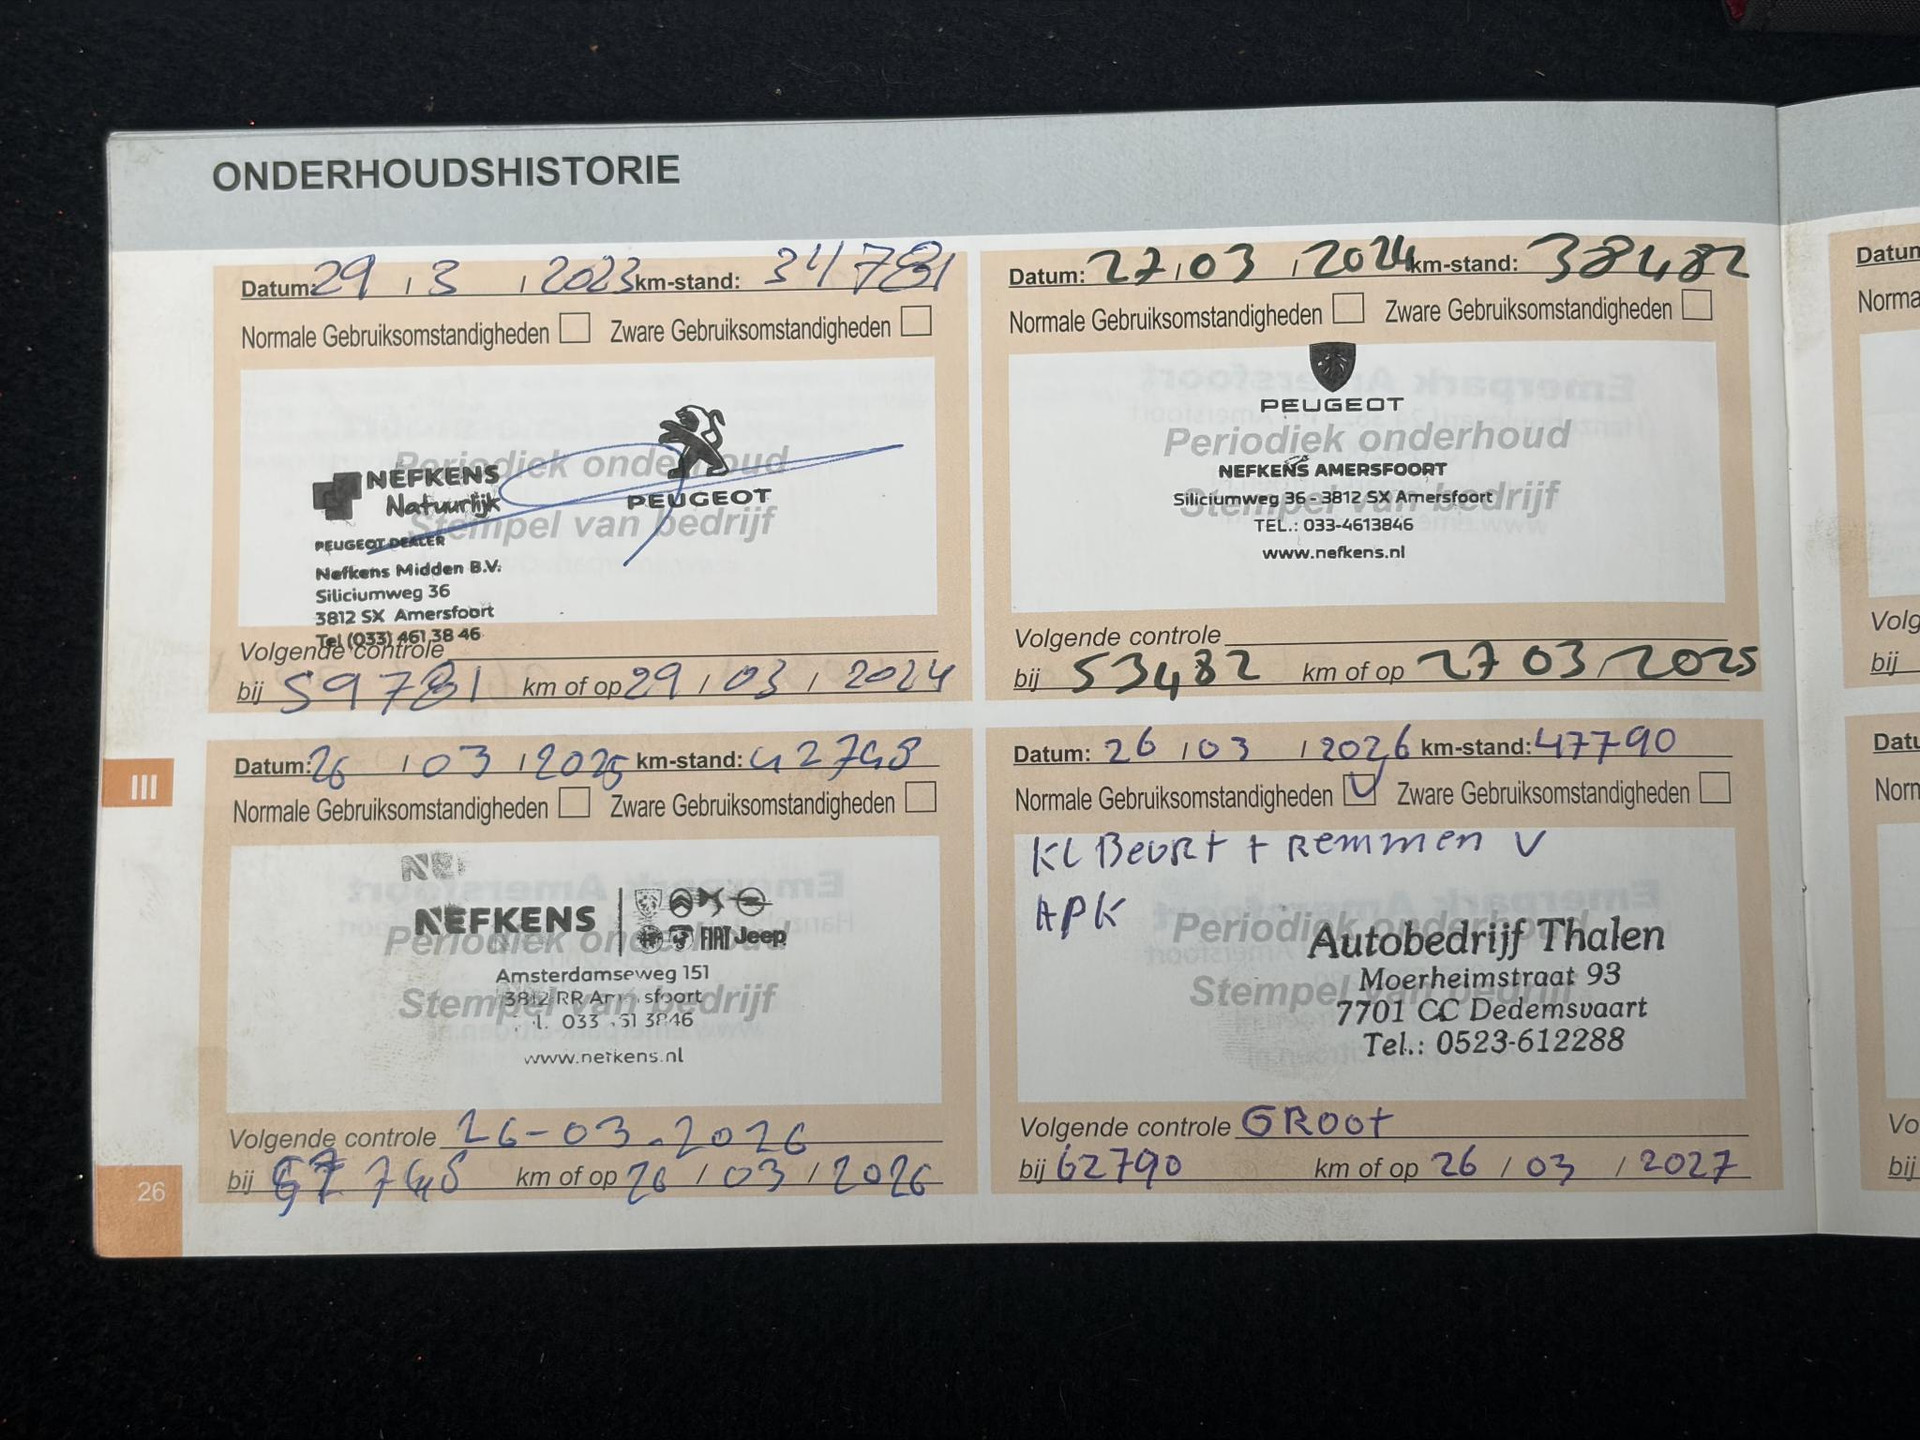 ONDERHOUDSHISTORIE
Datum: 29 / 3 / 2023 km-stand: 34781
Normale Gebruiksomstandigheden Zware Gebruiksomstandigheden
Periodiek onderhoud
Stempel van bedrijf
NEFKENS
Natuurlijk
PEUGEOT
PEUGEOT DEALER
Nefkens Midden B.V.
Siliciumweg 36
3812 SX Amersfoort
Tel (033) 461 38 46
Volgende controle
bij 59781 km of op 29 / 03 / 2024
Datum: 27 / 03 / 2024 km-stand: 38482
Normale Gebruiksomstandigheden Zware Gebruiksomstandigheden
PEUGEOT
Periodiek onderhoud
NEFKENS AMERSFOORT
Stempel van bedrijf
Siliciumweg 36 - 3812 SX Amersfoort
TEL.: 033-4613846
www.nefkens.nl
Volgende controle
bij 53482 km of op 27 03 / 2025
III
Datum: 26 / 03 / 2025 km-stand: 42748
Normale Gebruiksomstandigheden Zware Gebruiksomstandigheden
NEFKENS
FIAT Jeep
Periodiek onderhoud
Amsterdamseweg 151
Stempel van bedrijf
3812 RR Amersfoort
www.nefkens.nl
Volgende controle 26-03-2026
bij 57748 km of op 26 / 03 / 2026
Datum: 26 / 03 / 2026 km-stand: 47790
Normale Gebruiksomstandigheden V Zware Gebruiksomstandigheden
KL Beurt + Remmen V
APK
Periodiek onderhoud
Stempel van bedrijf
Autobedrijf Thalen
Moerheimstraat 93
7701 CC Dedemsvaart
Tel.: 0523-612288
Volgende controle GROOT
bij 62790 km of op 26 / 03 / 2027
26
Datum
Norma
Volg
bij
Datu
Norn
Vo
bij